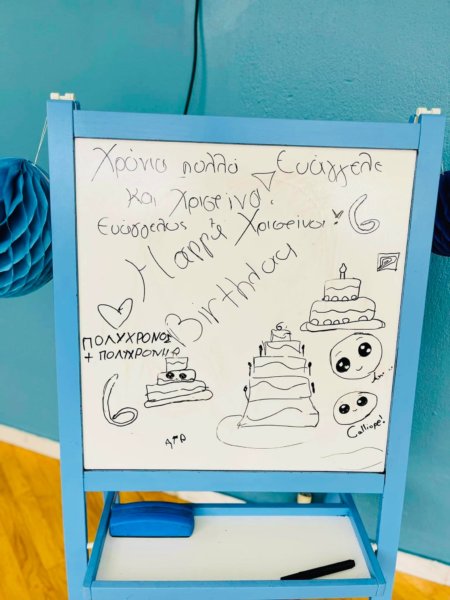 Χρόνια πολλά Ευάγγελε
και Χριστίνα!
Ευάγγελος & Χριστίνα! 6
Happy
Birthday
ΠΟΛΥΧΡΟΝΟΣ
+ ΠΟΛΥΧΡΟΝΙΑ
6
6
Calliope!